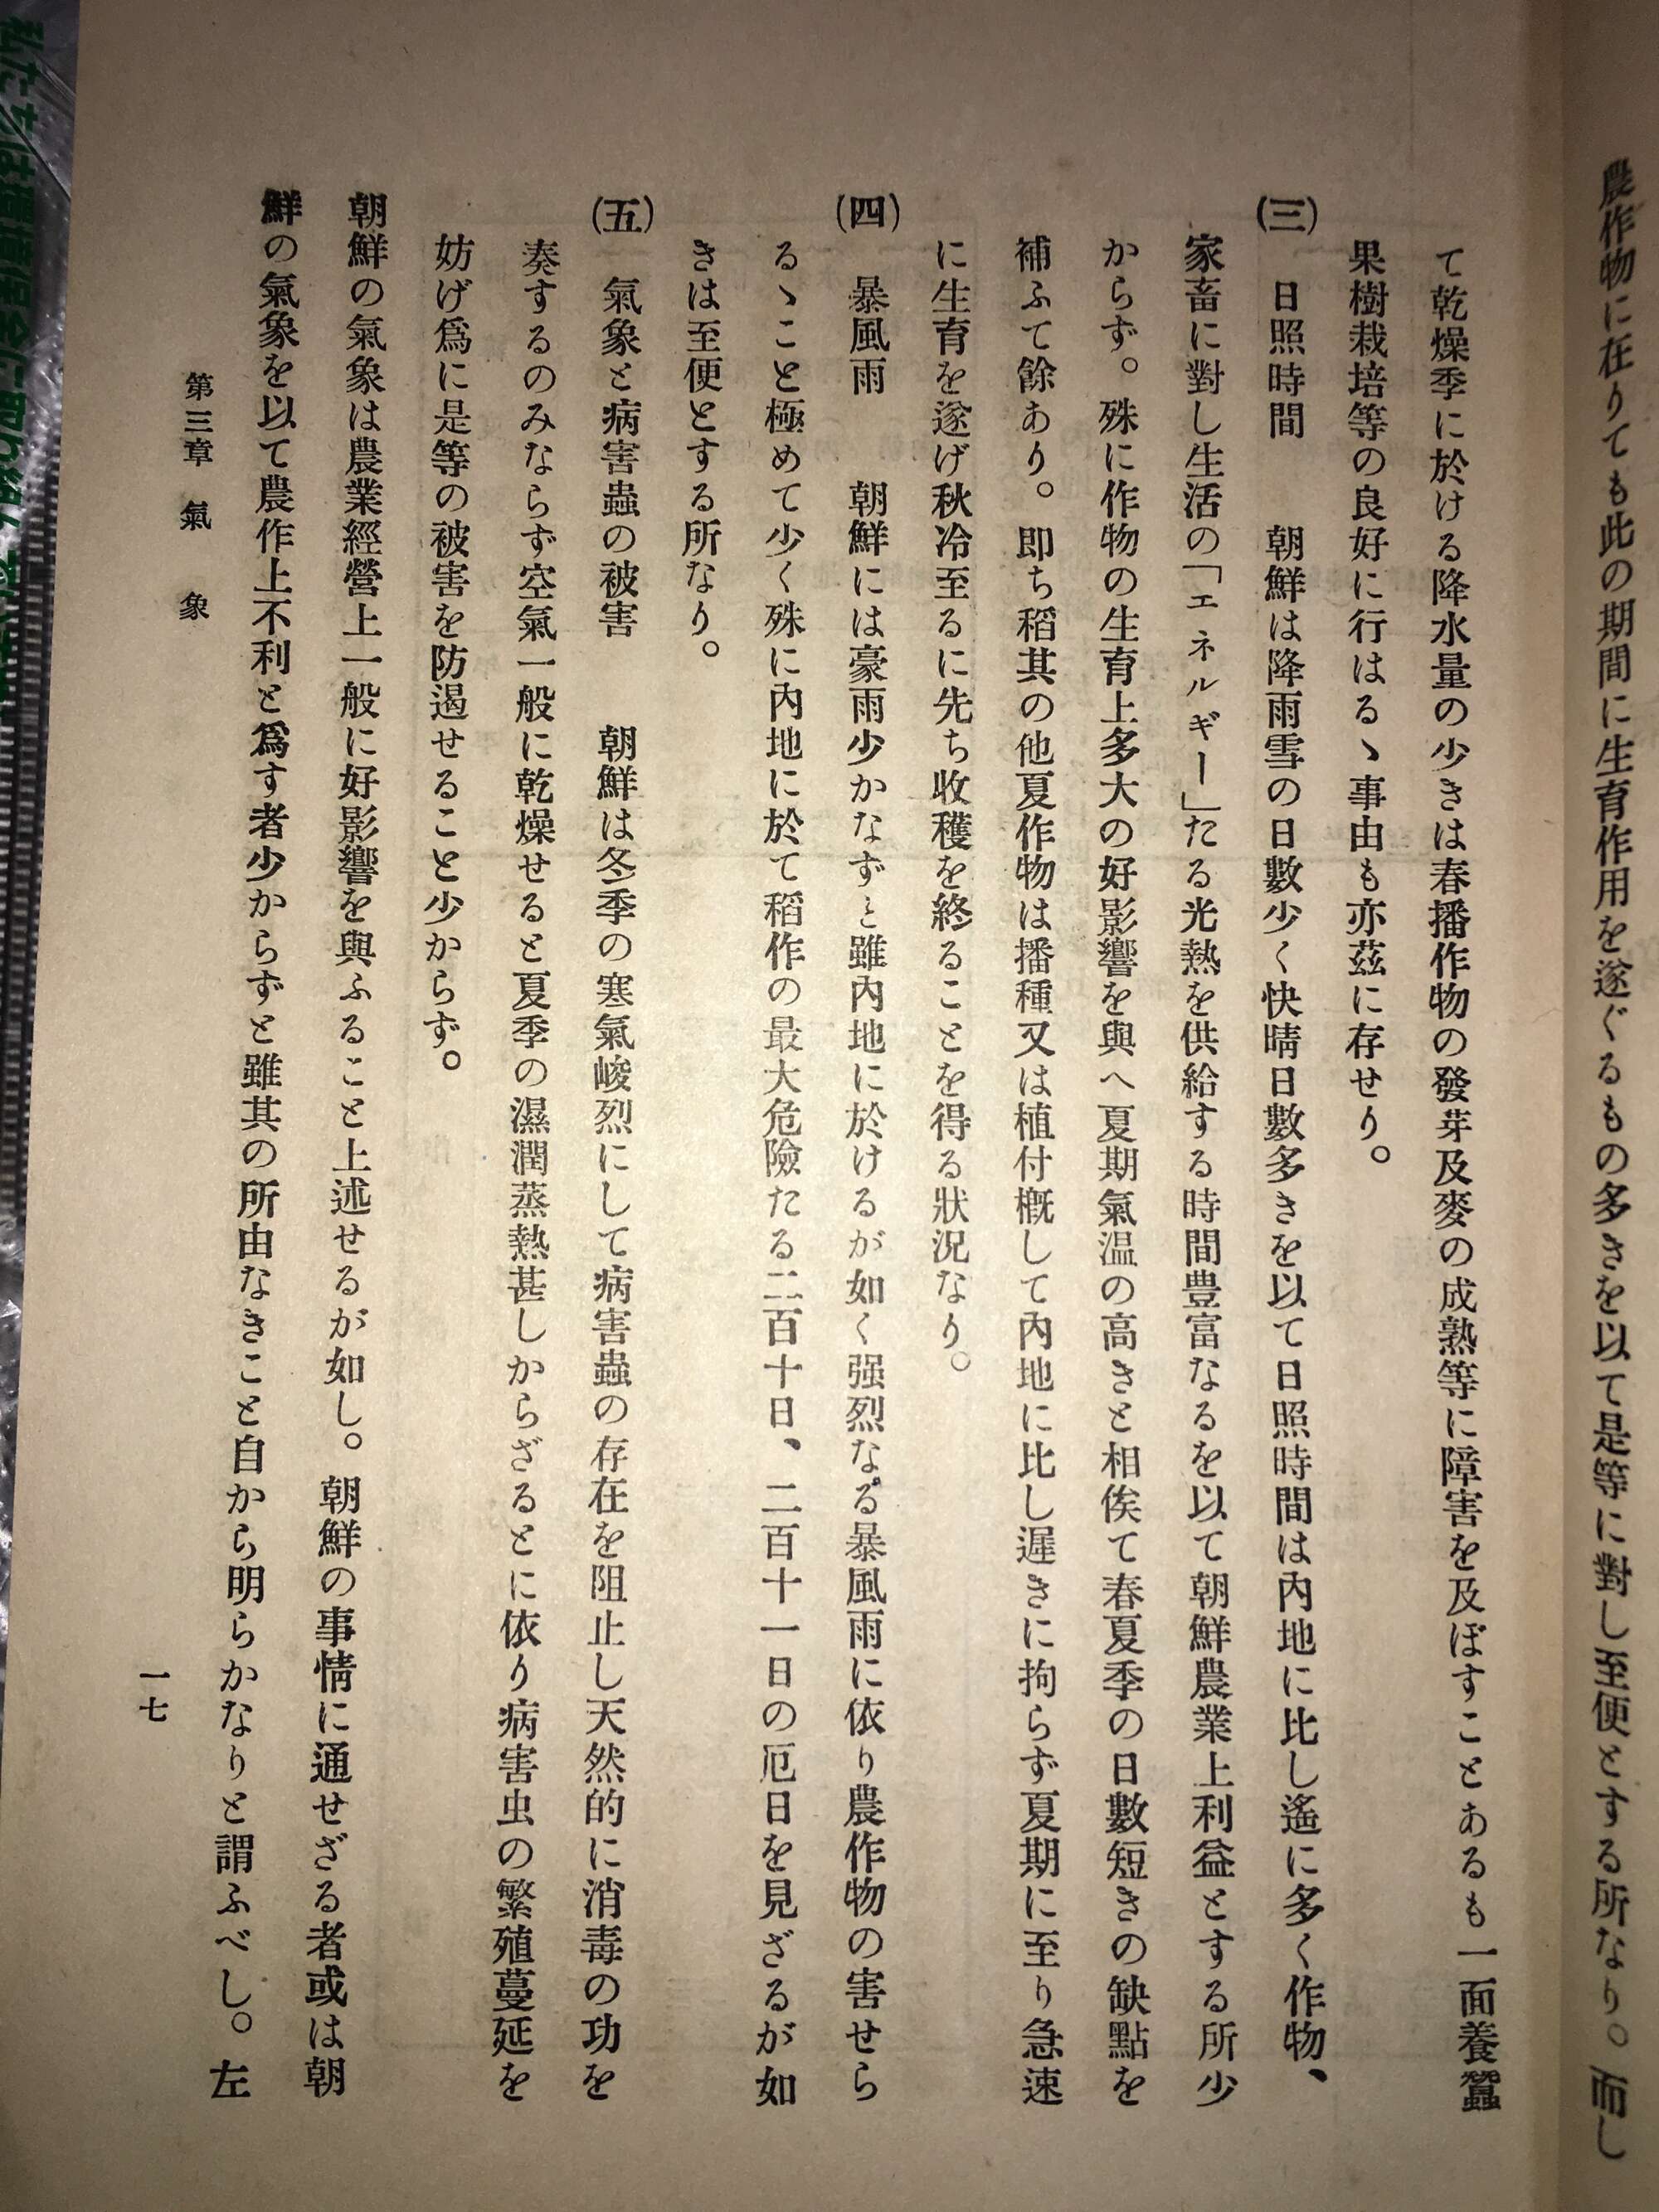 農作物に在りても此の期間に生育作用を遂ぐるもの多きを以て是等に對し至便とする所なり。而し
て乾燥季に於ける降水量の少きは春播作物の發芽及麥の成熟等に障害を及ぼすことあるも一面養蠶
果樹栽培等の良好に行はるヽ事由も亦茲に存せり。
(三) 日照時間 朝鮮は降雨雪の日數少く快晴日數多きを以て日照時間は內地に比し遙に多く作物、
家畜に對し生活の「エネルギー」たる光熱を供給する時間豊富なるを以て朝鮮農業上利益とする所少
からず。殊に作物の生育上多大の好影響を與へ夏期氣温の高きと相俟て春夏季の日數短きの缺點を
補ふて餘あり。即ち稻其の他夏作物は播種又は植付槪して內地に比し遲きに拘らず夏期に至り急速
に生育を遂げ秋冷至るに先ち收穫を終ることを得る狀況なり。
(四) 暴風雨 朝鮮には豪雨少かなずと雖內地に於けるが如く强烈なる暴風雨に依り農作物の害せら
るヽこと極めて少く殊に內地に於て稻作の最大危險たる二百十日、二百十一日の厄日を見ざるが如
きは至便とする所なり。
(五) 氣象と病害蟲の被害 朝鮮は冬季の寒氣峻烈にして病害蟲の存在を阻止し天然的に消毒の功を
奏するのみならず空氣一般に乾燥せると夏季の濕潤蒸熱甚しからざるとに依り病害虫の繁殖蔓延を
妨げ爲に是等の被害を防遏せること少からず。
朝鮮の氣象は農業經營上一般に好影響を與ふること上述せるが如し。朝鮮の事情に通せざる者或は朝
鮮の氣象を以て農作上不利と爲す者少からずと雖其の所由なきこと自から明らかなりと謂ふべし。左
第三章 氣 象
一七